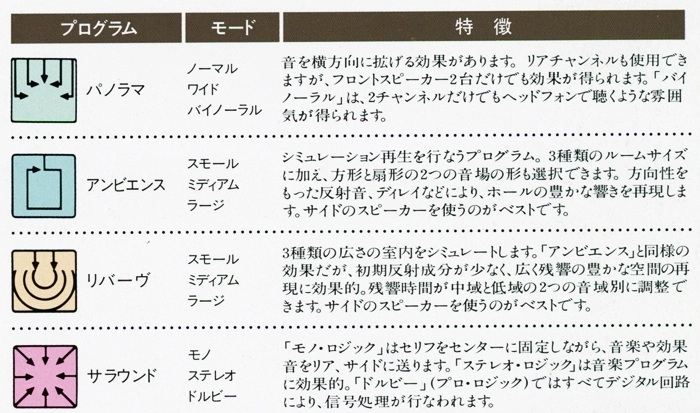 プログラム モード 特徴
パノラマ
ノーマル
ワイド
バイノーラル
音を横方向に拡げる効果があります。リアチャンネルも使用でき
ますが、フロントスピーカー2台だけでも効果が得られます。「バイ
ノーラル」は、2チャンネルだけでもヘッドフォンで聴くような雰囲
気が得られます。
アンビエンス
スモール
ミディアム
ラージ
シミュレーション再生を行なうプログラム。3種類のルームサイズ
に加え、方形と扇形の2つの音場の形も選択できます。方向性を
もった反射音、ディレイなどにより、ホールの豊かな響きを再現しま
す。サイドのスピーカーを使うのがベストです。
リバーヴ
スモール
ミディアム
ラージ
3種類の広さの室内をシミュレートします。「アンビエンス」と同様の
効果だが、初期反射成分が少なく、広く残響の豊かな空間の再
現に効果的。残響時間が中域と低域の2つの音域別に調整で
きます。サイドのスピーカーを使うのがベストです。
サラウンド
モノ
ステレオ
ドルビー
「モノ・ロジック」はセリフをセンターに固定しながら、音楽や効果
音をリア、サイドに送ります。「ステレオ・ロジック」は音楽プログラム
に効果的。「ドルビー」(プロ・ロジック)ではすべてデジタル回路
により、信号処理が行なわれます。